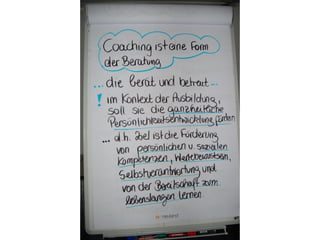 Coaching ist eine Form
der Beratung
... die berät und betreut ...
! im Kontext der Ausbildung,
soll sie die ganzheitliche
Persönlichkeitsentwicklung fördern
... d.h. Ziel ist die Förderung
von persönlichen u. sozialen
Kompetenzen, Wertebewusstsein,
Selbstverantwortung und
von der Bereitschaft zum
lebenslangen lernen.
neuland